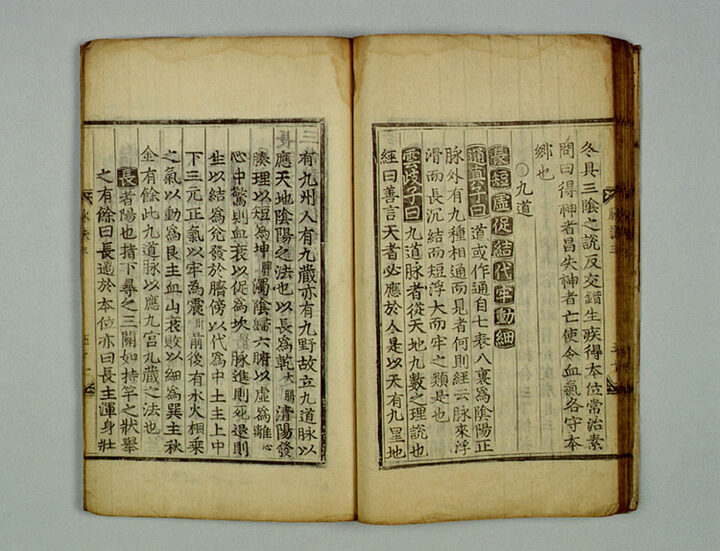 冬具三陰之說反交錯生疾得本位常治素
問曰得神者昌失神者亡使令血氣各守本
鄉也
○九道
長短虛促結代牢動細
通真子曰道或作通自七表八裏爲陰陽正
脉外有九種相通而見者何則經云脉來浮
滑而長沉結而短浮大而牢之類是也
雲岐子曰九道脉者從天地九數之理說也
經曰善言天者必應於人是以天有九星地
有九州人有九藏亦有九野故立九道脉以
應天地陰陽之法也以長爲乾大腸清陽發
腠理以短爲坤脾濁陰歸六腑以虛爲離心
心中驚則血衰以促爲坎腎脉進則死退則
生以結爲兊發於臍傍以代爲中土主上中
下三元正氣以牢為震肝前後有水火相乘
之氣以動爲艮主血山衰敗以細爲巽主秋
金有餘此九道脉以應九宮九藏之法也
長者陽也指下尋之三關如持竿之狀舉
之有餘曰長過於本位亦曰長主渾身壯